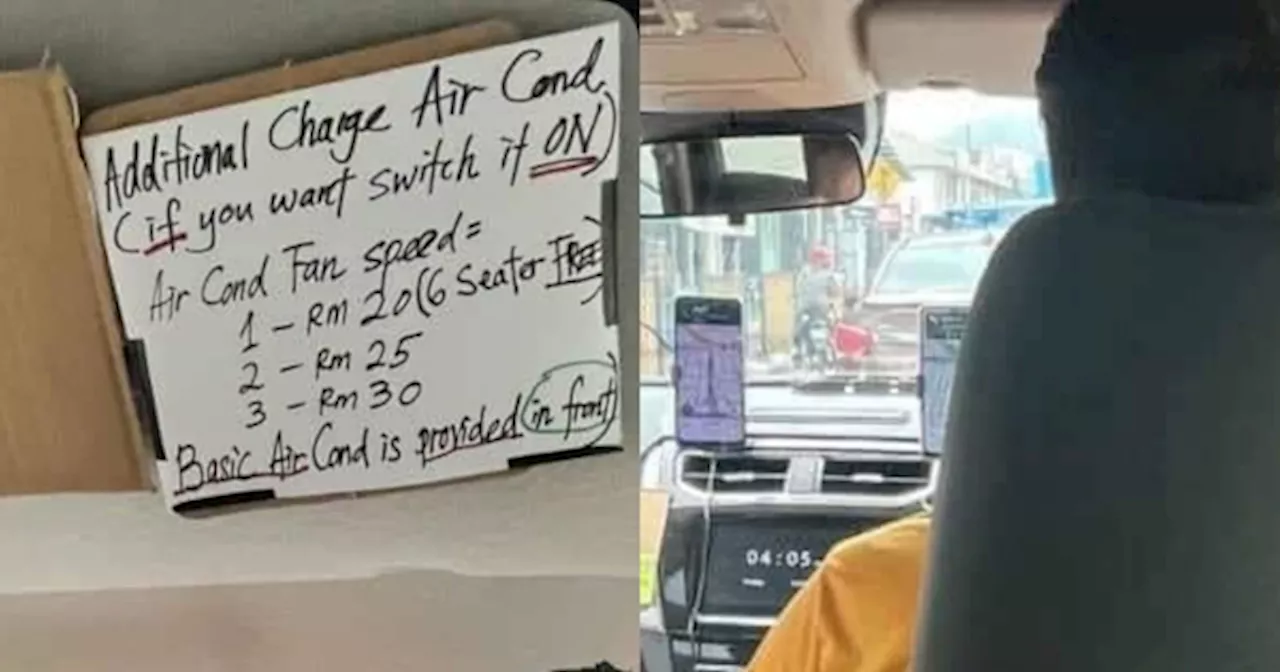 Additional Charge Air Cond
(if you want switch it ON)
Air Cond Fan speed =
1 - Rm 20 (6 Seater FREE)
2 - Rm 25
3 - Rm 30
Basic Air Cond is provided in front
04:05